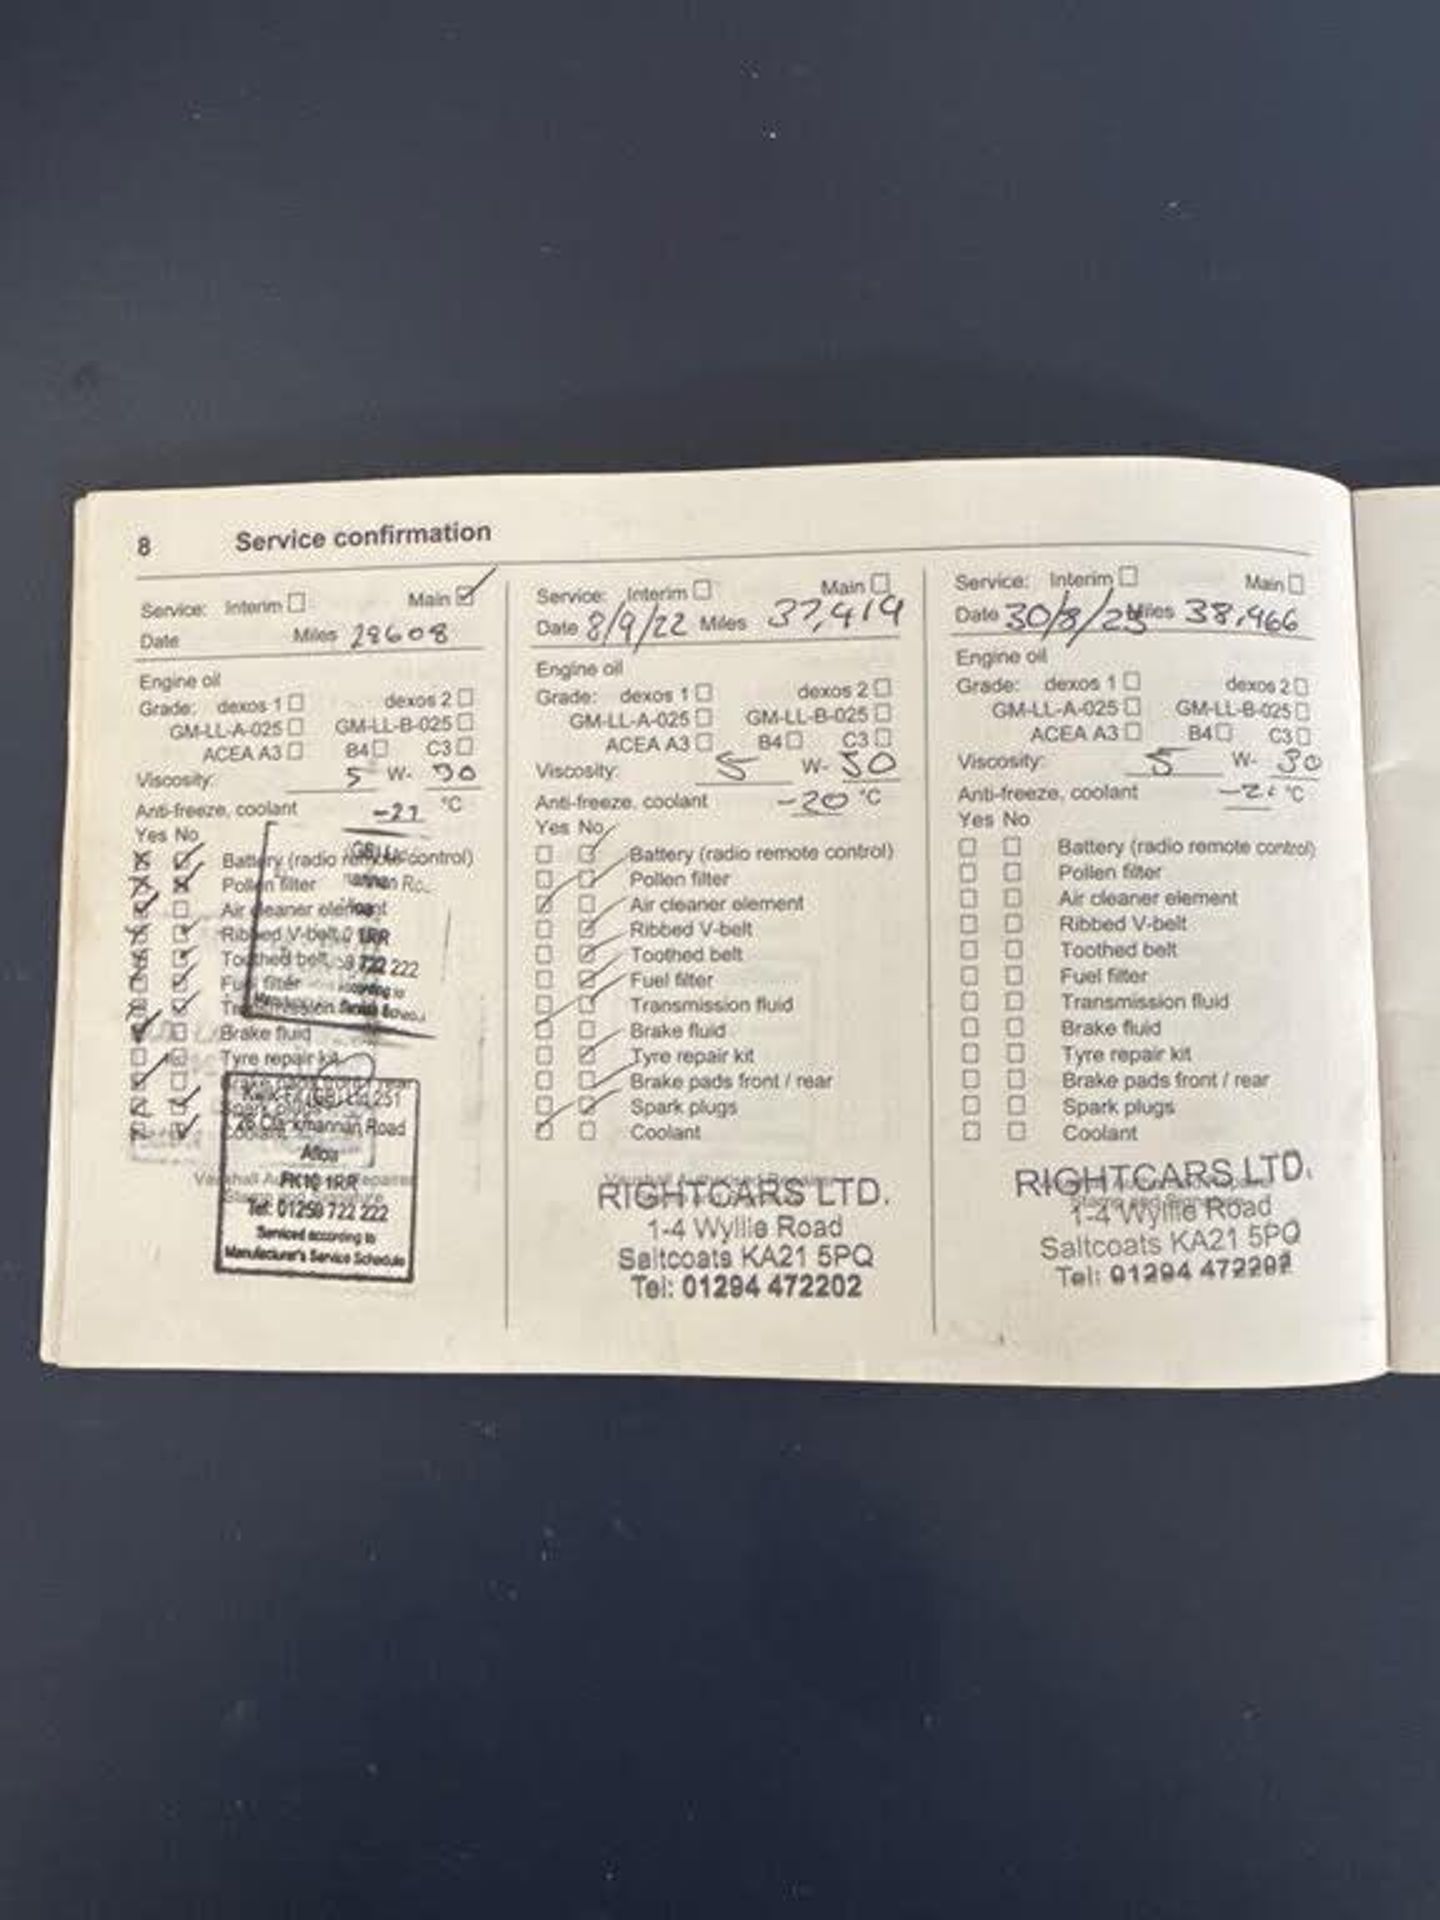 8 Service confirmation
Service: Interim Main
Date Miles 28608
Engine oil
Grade: dexos 1 dexos 2
GM-LL-A-025 GM-LL-B-025
ACEA A3 B4 C3
Viscosity: 5 W- 30
Anti-freeze, coolant °C
Yes No
Battery (radio remote control)
Pollen filter
Air cleaner element
Ribbed V-belt
Toothed belt
Fuel filter
Transmission
Brake fluid
Tyre repair kit
Brake pads front / rear
Spark plugs
Coolant
Clackmannan Road
Alloa
FK10 1RR
Tel: 01259 722 222
Serviced according to
Manufacturer's Service Schedule
Service: Interim Main
Date 8/9/22 Miles 37,419
Engine oil
Grade: dexos 1 dexos 2
GM-LL-A-025 GM-LL-B-025
ACEA A3 B4 C3
Viscosity: 5 W- 30
Anti-freeze, coolant -20 °C
Yes No
Battery (radio remote control)
Pollen filter
Air cleaner element
Ribbed V-belt
Toothed belt
Fuel filter
Transmission fluid
Brake fluid
Tyre repair kit
Brake pads front / rear
Spark plugs
Coolant
RIGHTCARS LTD.
1-4 Wyllie Road
Saltcoats KA21 5PQ
Tel: 01294 472202
Service: Interim Main
Date 30/8/23 Miles 38,966
Engine oil
Grade: dexos 1 dexos 2
GM-LL-A-025 GM-LL-B-025
ACEA A3 B4 C3
Viscosity: 5 W- 30
Anti-freeze, coolant °C
Yes No
Battery (radio remote control)
Pollen filter
Air cleaner element
Ribbed V-belt
Toothed belt
Fuel filter
Transmission fluid
Brake fluid
Tyre repair kit
Brake pads front / rear
Spark plugs
Coolant
RIGHTCARS LTD.
1-4 Wyllie Road
Saltcoats KA21 5PQ
Tel: 01294 472202